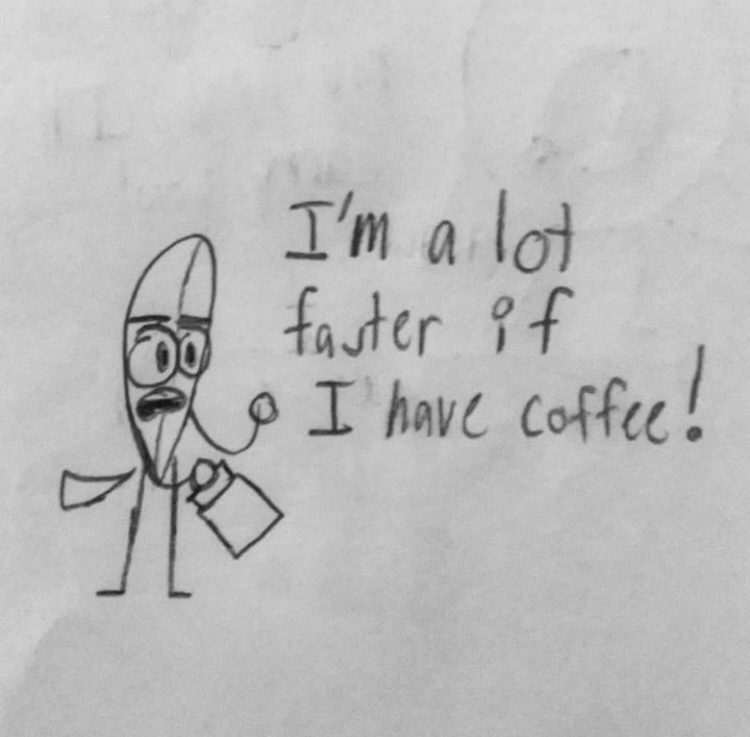 I'm a lot
faster if
I have coffee!